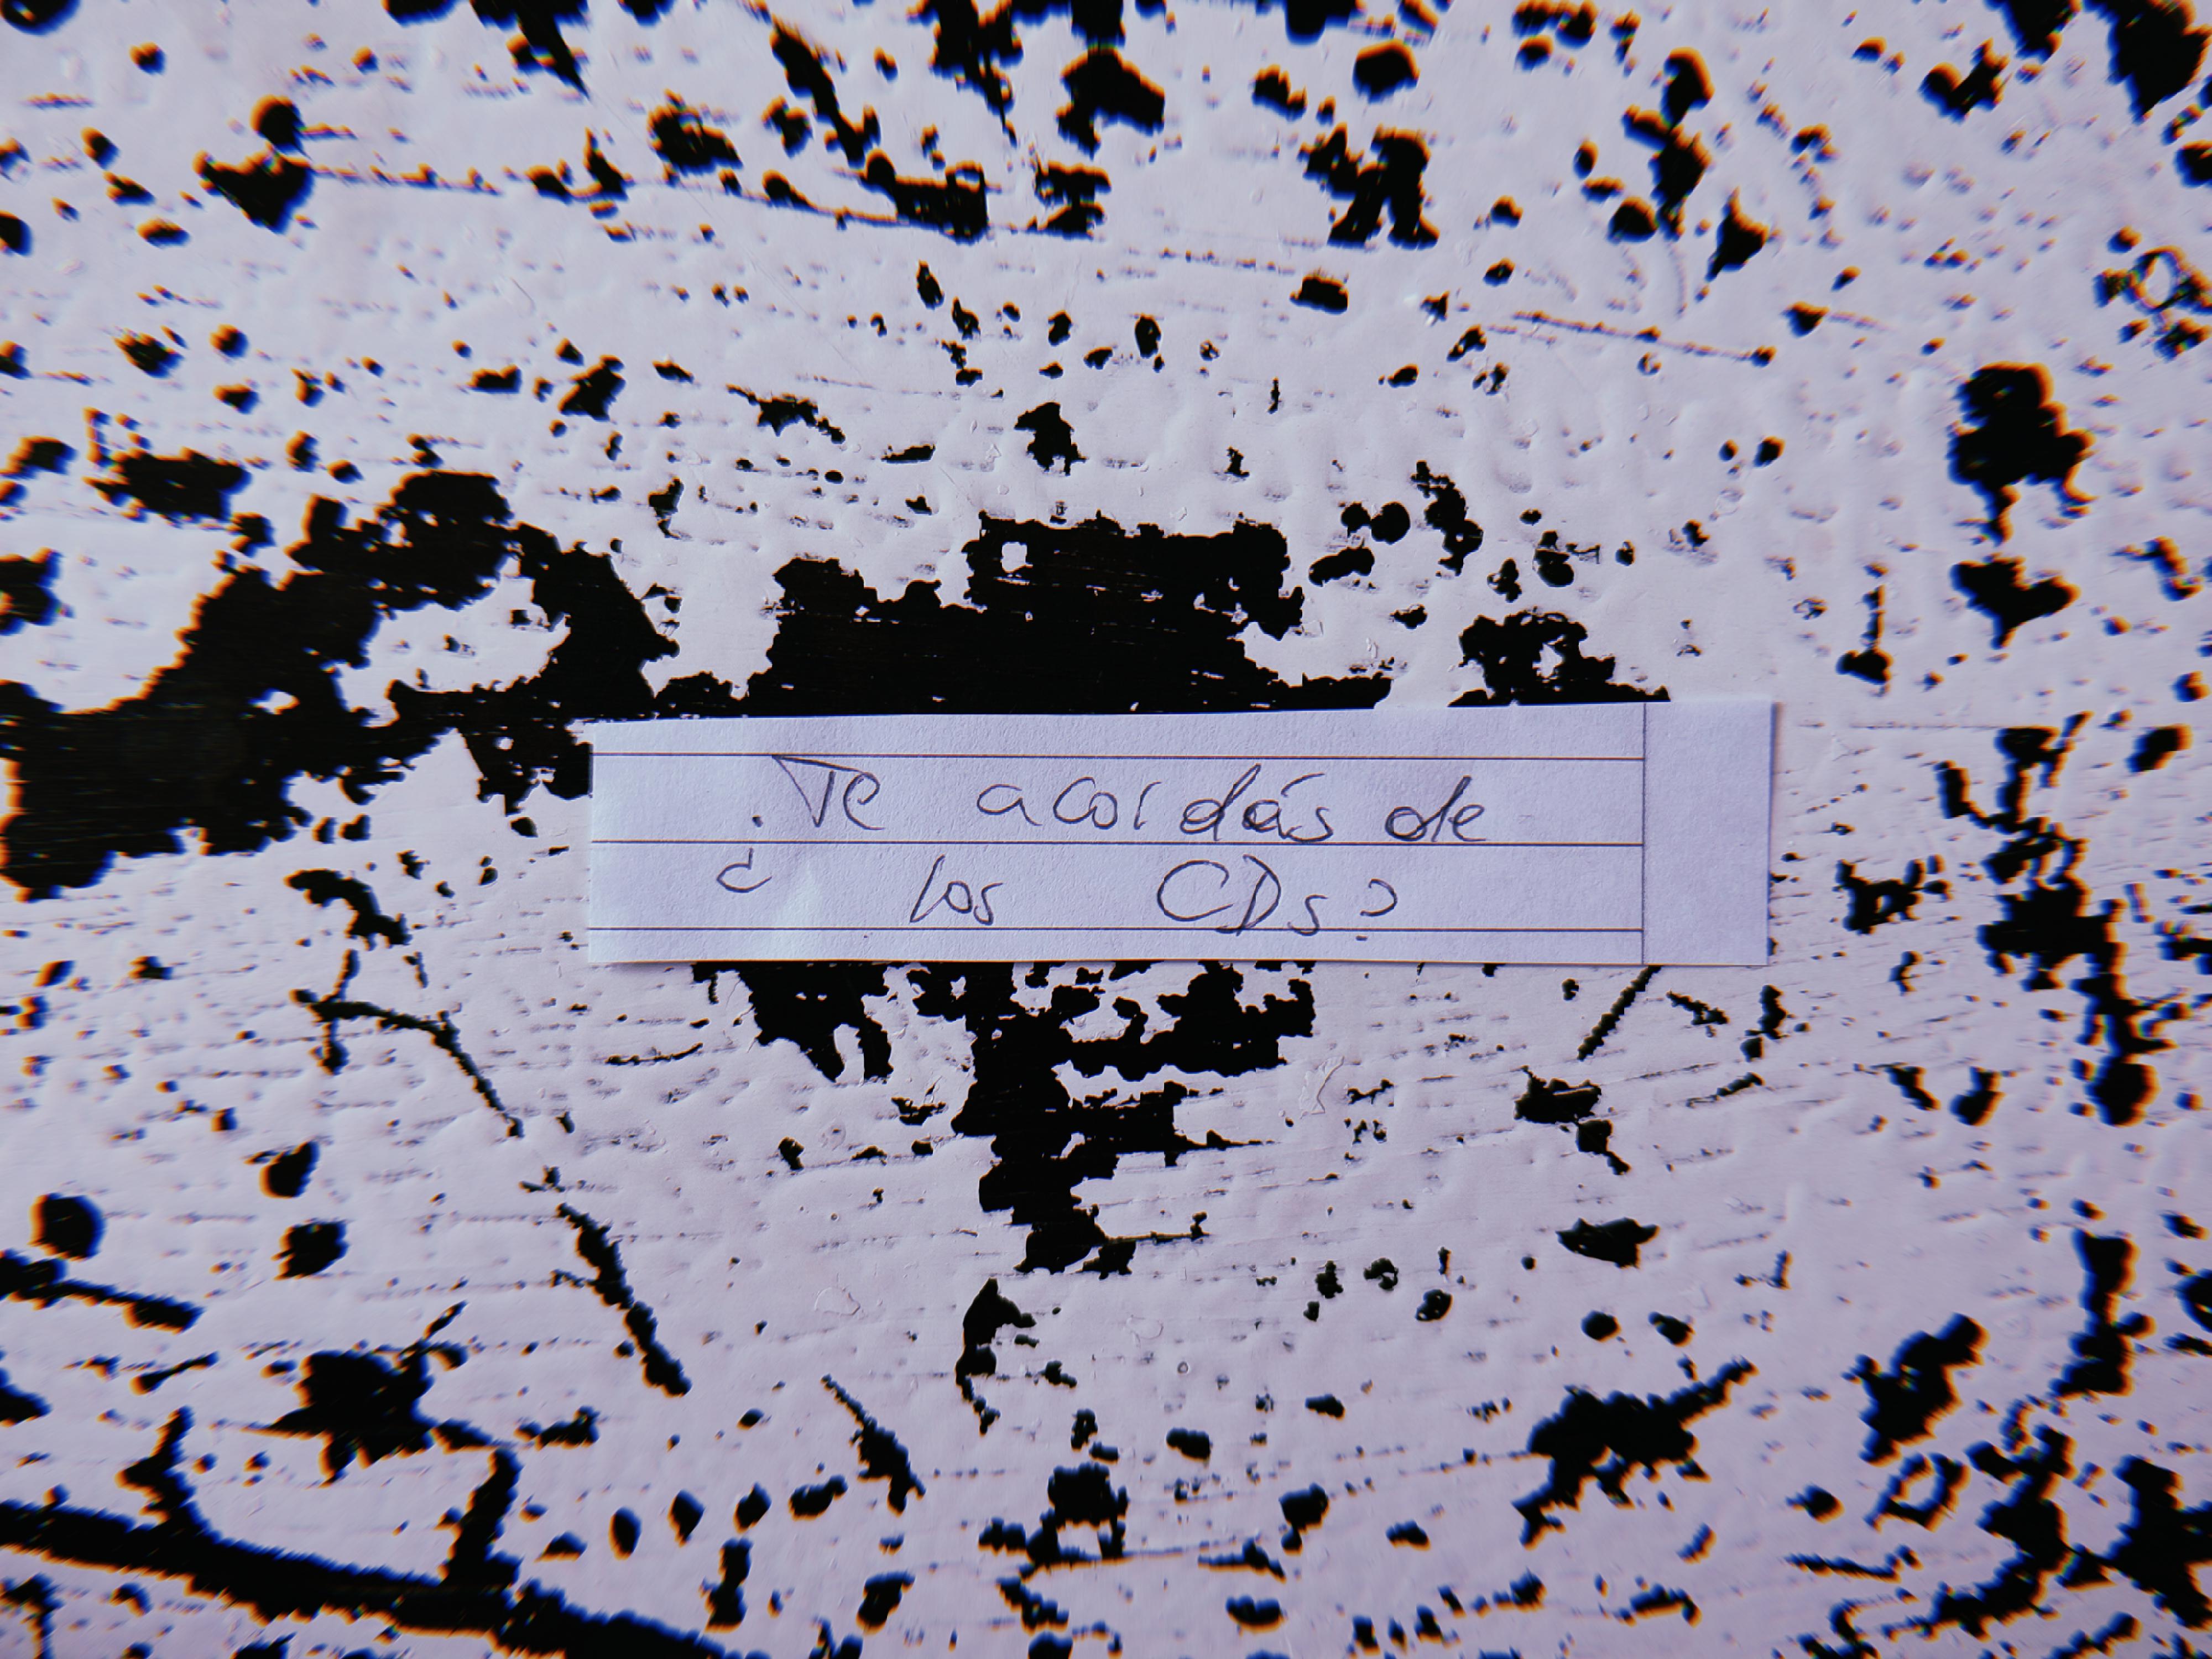 ¿Te acordás de
los CDs?